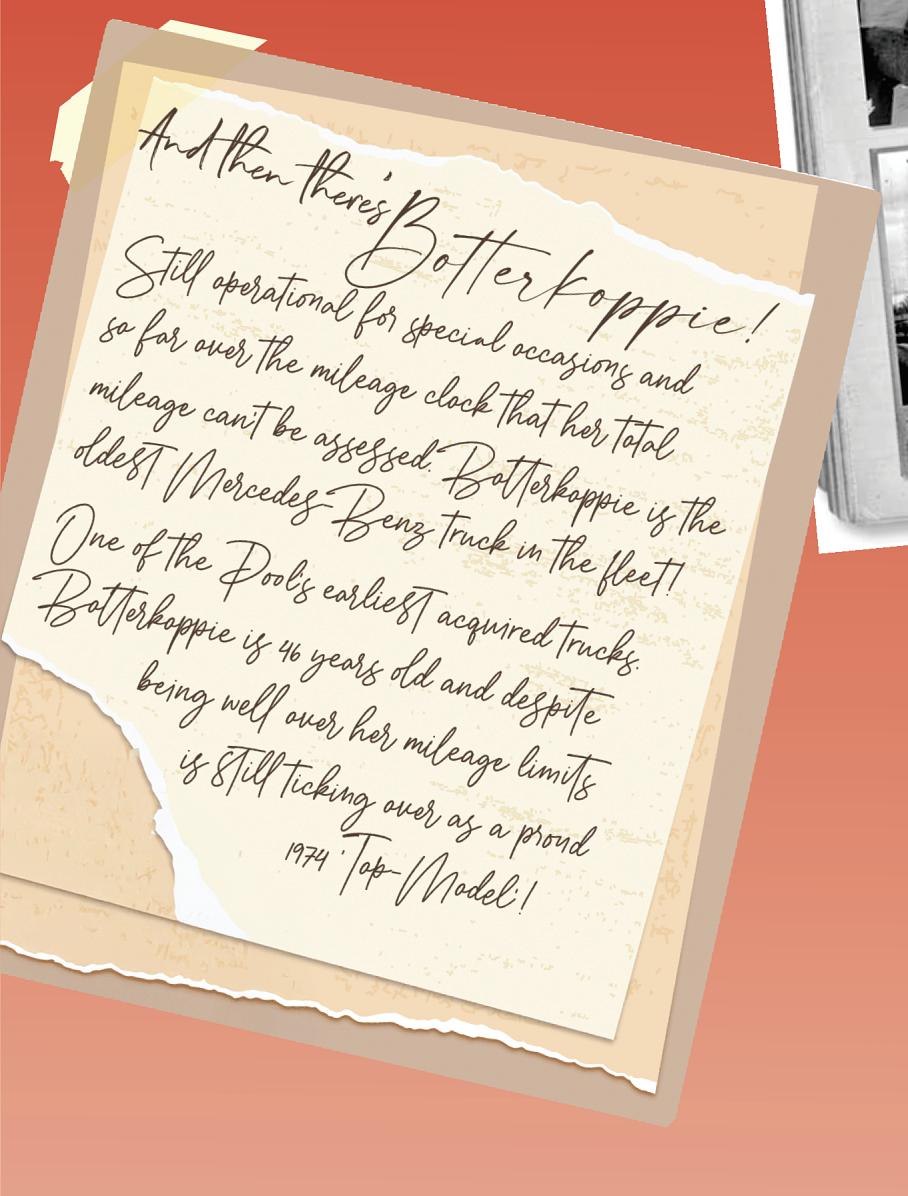 And then there's Botterkoppie!
Still operational for special occasions and
so far over the mileage clock that her total
mileage can't be assessed. Botterkoppie is the
oldest Mercedes-Benz truck in the fleet!
One of the Pool's earliest acquired trucks.
Botterkoppie is 46 years old and despite
being well over her mileage limits
is still ticking over as a proud
1974 'Top-Model'!